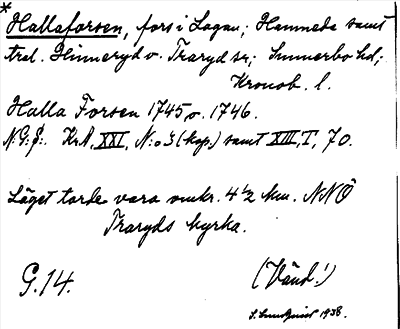 * Hallaforsen, fors i Lagan; Hamneda samt
tral. Hinneryd o. Traryd sn; Sunnerbo hd;
Kronob. l.
Halla Forsen 1745 o. 1746.
N:G:S: Kr.A. XXI, N:o 3 (kop.) samt XIII, I, 70.
Läget torde vara omkr. 4 1/2 km. NNÖ
Traryds kyrka.
G.14.
(Vänd!)
S. Lundquist 1938.